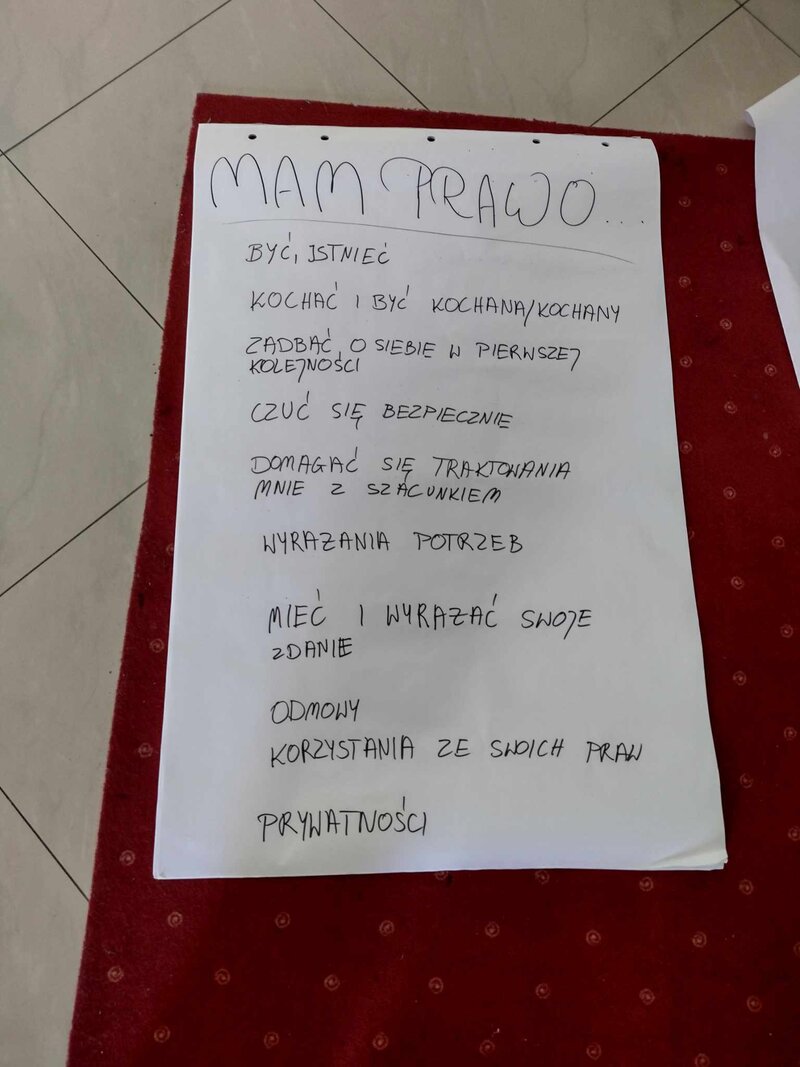 MAM PRAWO....
BYĆ, ISTNIEĆ
KOCHAĆ I BYĆ KOCHANA/KOCHANY
ZADBAĆ O SIEBIE W PIERWSZEJ
KOLEJNOŚCI
CZUĆ SIĘ BEZPIECZNIE
DOMAGAĆ SIĘ TRAKTOWANIA
MNIE Z SZACUNKIEM
WYRAŻANIA POTRZEB
MIEĆ I WYRAŻAĆ SWOJE
ZDANIE
ODMOWY
KORZYSTANIA ZE SWOICH PRAW
PRYWATNOŚCI